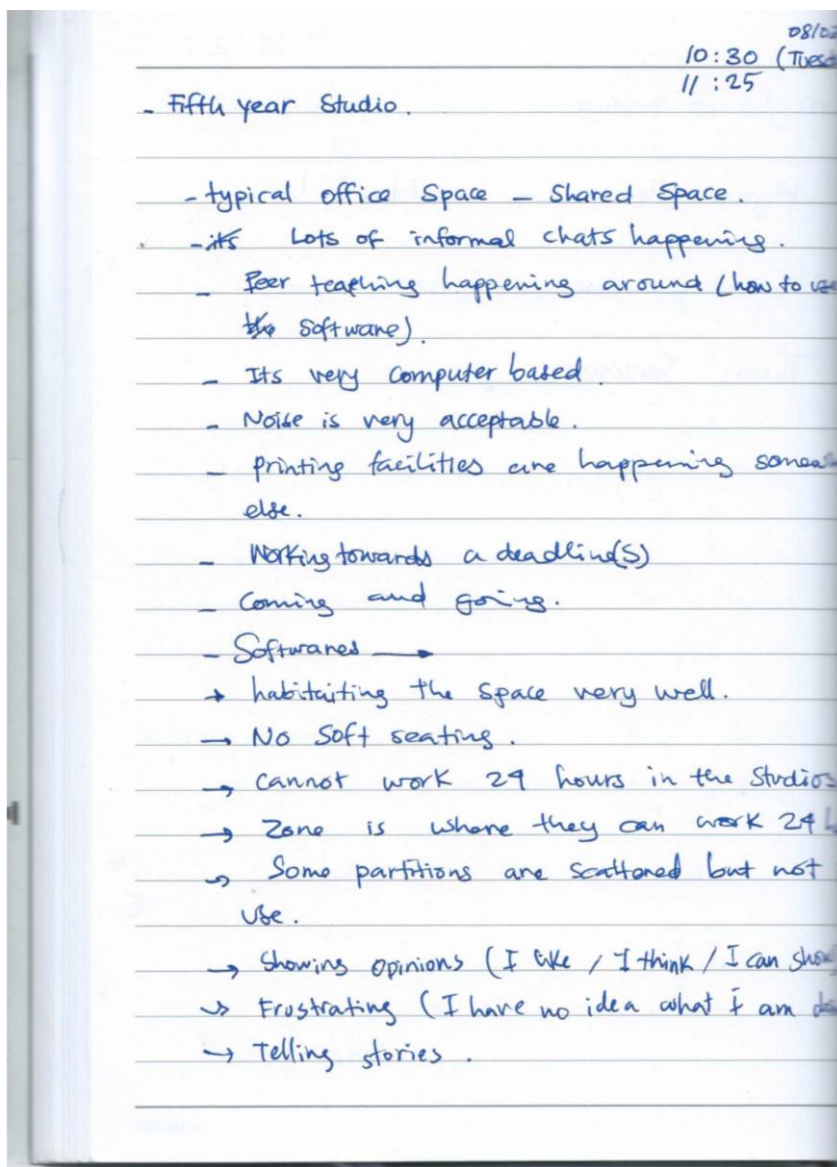 08/02
10:30 (Tuesd
11:25
- Fifth year Studio.
- typical office Space - Shared Space.
- its Lots of informal chats happening.
- Peer teaching happening around (how to use
the software).
- Its very computer based.
- Noise is very acceptable.
- printing facilities are happening somew
else.
- Working towards a deadline(s)
- Coming and going.
- Softwares →
→ habitaiting the space very well.
→ No soft seating.
→ cannot work 24 hours in the Studios
→ Zone is where they can work 24 h
→ Some partitions are scattered but not
use.
→ Showing opinions (I like / I think / I can show
→ Frustrating (I have no idea what I am do
→ Telling stories.